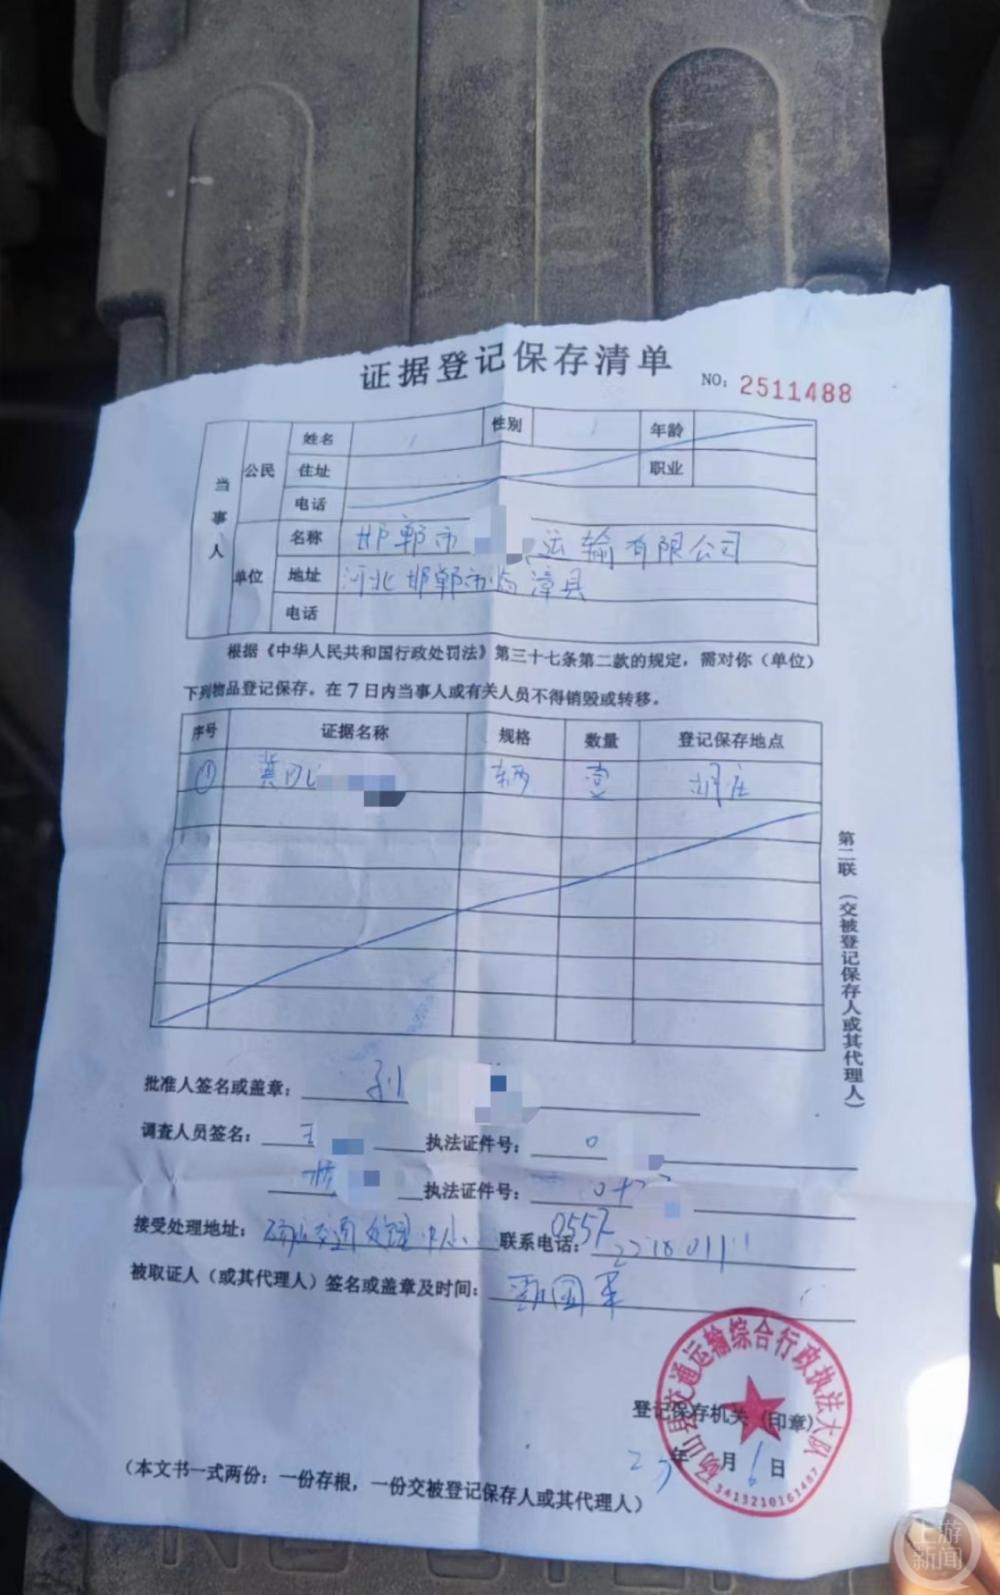 证据登记保存清单
NO: 2511488
当事人
公民
姓名 性别 年龄
住址 职业
电话
单位
名称 邯郸市 运输有限公司
地址 河北邯郸市临漳县
电话
根据《中华人民共和国行政处罚法》第三十七条第二款的规定，需对你（单位）
下列物品登记保存。在7日内当事人或有关人员不得销毁或转移。
序号 证据名称 规格 数量 登记保存地点
① 冀D 辆 壹
第二联（交被登记保存人或其代理人）
批准人签名或盖章：
调查人员签名： 王 执法证件号： 0
执法证件号：
接受处理地址： 交通处理中心 联系电话： 0557
被取证人（或其代理人）签名或盖章及时间： 国军
登记保存机关（印章）
年 月 6 日
砀山县交通运输综合行政执法大队
3413210161487
（本文书一式两份：一份存根，一份交被登记保存人或其代理人）
上游新闻